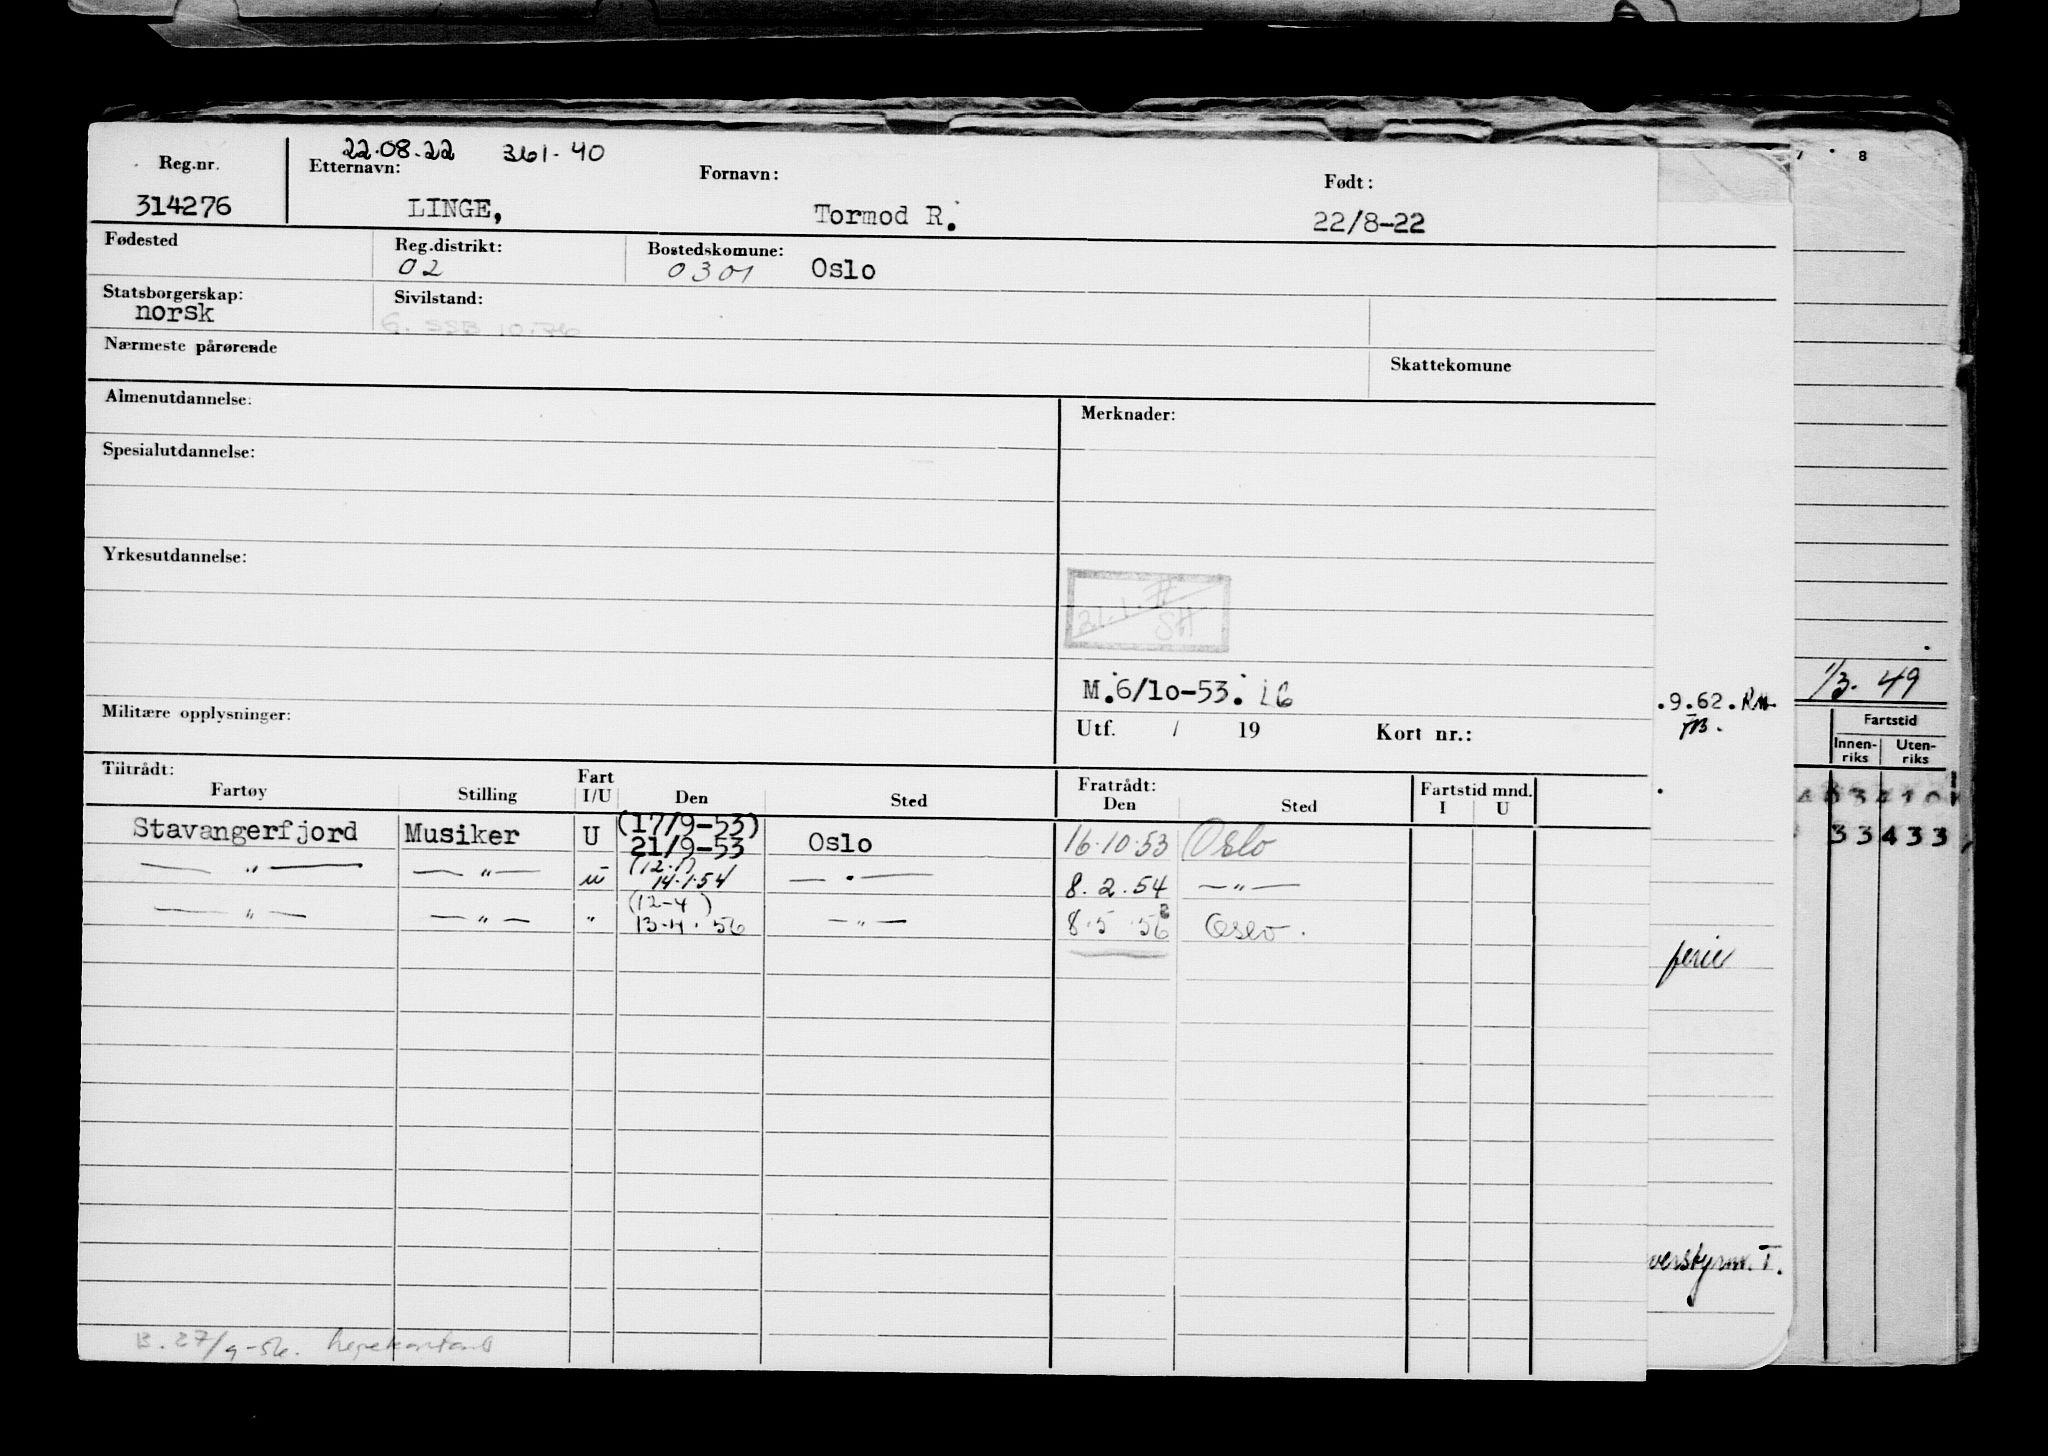 22.08.22 361.40
Reg.nr. Etternavn: Fornavn: Født:
314276 LINGE, Tormod R. 22/8-22
Fødested Reg.distrikt: Bostedskomune:
02 0301 Oslo
Statsborgerskap: Sivilstand:
norsk G. SSB 10.
Nærmeste pårørende Skattekomune
Almenutdannelse: Merknader:
Spesialutdannelse:
Yrkesutdannelse:
M. 6/10-53.
Militære opplysninger: Utf. / 19 Kort nr.:
Tiltrådt: Fratrådt:
Fartøy Stilling Fart I/U Den Sted Den Sted Fartstid mnd. I U
(17/9-53)
Stavangerfjord Musiker U 21/9-53 Oslo 16.10.53 Oslo
(12.1)
— " — — " — u 14.1.54 — " — 8.2.54 — " —
(12-4)
— " — — " — " 13.4.56 — " — 8.5.56 Oslo.
B. 27/9-56.
7 8
1/3. 49
.9.62.
Fartstid
Innen-riks Uten-riks
33 433
ferie
overstyrm. I.